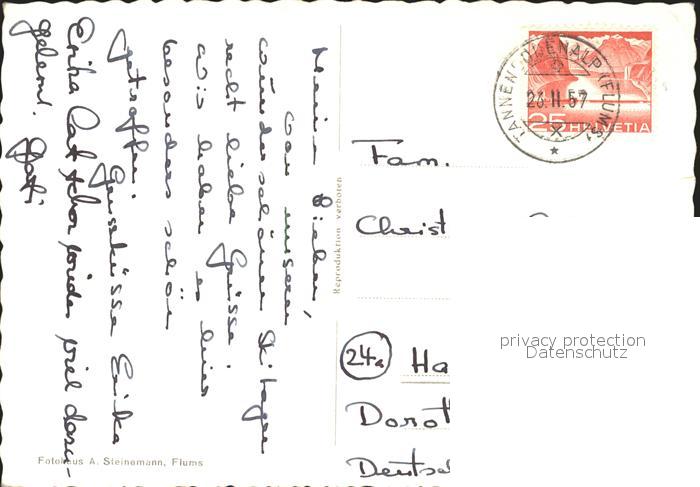 Meine Lieben,
von unseren
wunderschönen Skitagen
recht liebe Grüsse.
Wir haben es hier
besonders schön
getroffen.
Grussküsse Erika
Erika hat schon wieder viel dazu-
gelernt. Gatti
Reproduktion verboten
Fotohaus A. Steinemann, Flums
TANNENBODENALP (FLUMS)
26.II.57
25 HELVETIA
Fam.
Christ
24a Ha
Dorot
Deutsc
privacy protection
Datenschutz